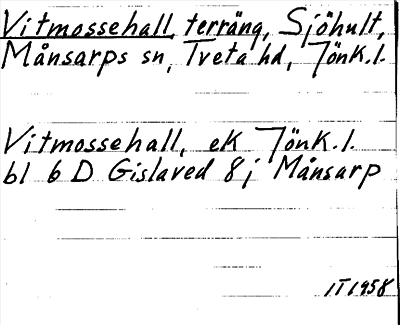 Vitmossehall, terräng, Sjöhult,
Månsarps sn, Tveta hd, Jönk.l.
Vitmossehall, ek Jönk.l.
bl 6 D Gislaved 8 j Månsarp
IT1958